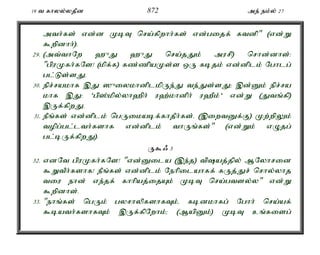 19 வ காலல்லதீன 872 அந் நம்ல் 27
அவர்கள் என்ன முடிவு செய்கிறார்கள் என்பதைக் கவனி" (என்று
கூறினார்).
29. (அவ்வாறே ஹுது ஹுது செய்ததும் அரசி) சொன்னாள்:
"பிரமுகர்களே! (மிக்க) கண்ணியமுள்ள ஒரு கடிதம் என்னிடம் போடப்
பட்டுள்ளது.
30. நிச்சயமாக இது ஸுலைமானிடமிருந்து வந்துள்ளது: இன்னும் நிச்சய
மாக இது: 'பிஸ்மில்லாஹிர் ரஹ்மானிர் ரஹீம்' என்று (துவங்கி)
இருக்கிறது.
31. நீங்கள் என்னிடம் பெருமையடிக்காதீர்கள். (இறைவனுக்கு) முற்றிலும்
வழிப்பட்டவர்களாக என்னிடம் வாருங்கள்" (என்றும் எழுதப்
பட்டிருக்கிறது)
ருகூஃ 3
32. எனவே பிரமுகர்களே! "என்னுடைய (இந்த) விஷயத்தில் ஆலோசனை
கூறுவீர்களாக! நீங்கள் என்னிடம் நேரிடையாகக் கருத்துச் சொல்லாத
வரை நான் எந்தக் காரியத்தையும் முடிவு செய்பவளல்ல" என்று
கூறினாள்.
33. "நாங்கள் பெரும் பலசாலிகளாகவும், கடினமாகப் போர் செய்யக்
கூடியவர்களாகவும் இருக்கிறோம்; (ஆயினும்) முடிவு உங்களைப்